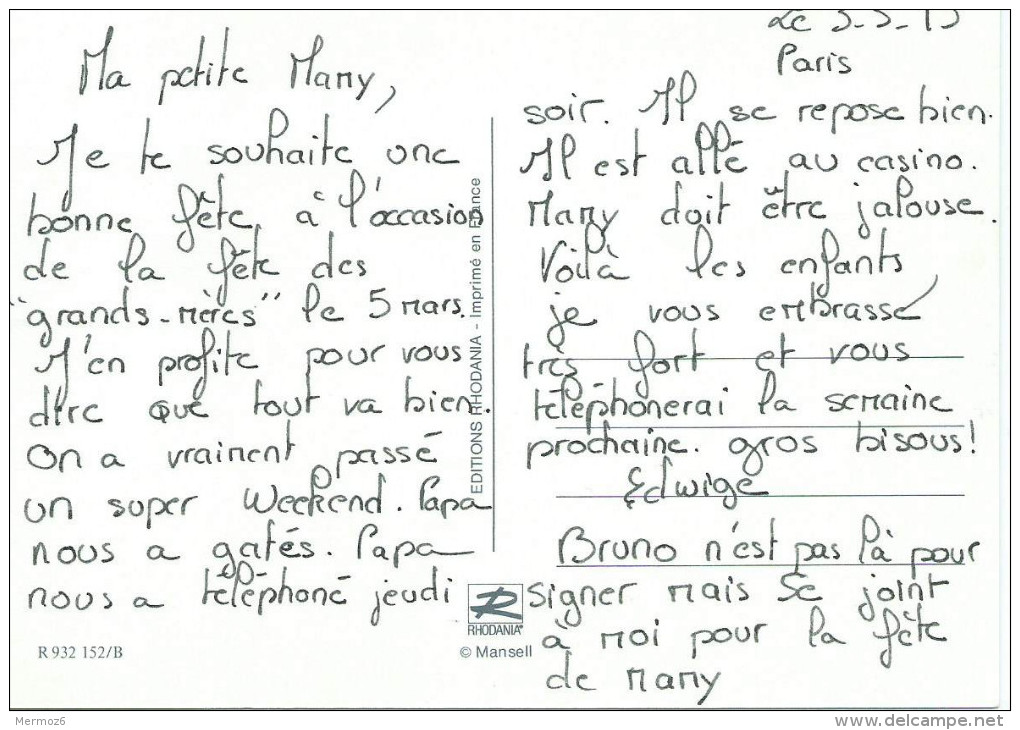 Paris
Ma petite Mamy,
Je te souhaite une
bonne fête, à l'occasion
de la fête des
"grands-mères" le 5 mars.
J'en profite pour vous
dire que tout va bien.
On a vraiment passé
un super weekend. Papa
nous a gatés. Papa
nous a téléphoné jeudi
soir. Il se repose bien.
Il est allé au casino.
Mamy doit être jalouse.
Voilà les enfants
je vous embrasse
très fort et vous
téléphonerai la semaine
prochaine. gros bisous!
Edwige
Bruno n'est pas là pour
signer mais se joint
à moi pour la fête
de mamy
EDITIONS RHODANIA - Imprimé en France
RHODANIA
R 932 152/B
© Mansell
Mermoz6
www.delcampe.net